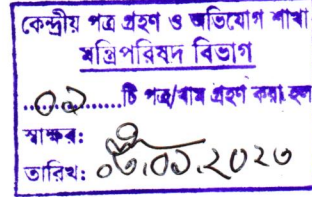 কেন্দ্রীয় পত্র গ্রহণ ও অভিযোগ শাখা
মন্ত্রিপরিষদ বিভাগ
..০১.....টি পত্র/খাম গ্রহণ করা হল
স্বাক্ষর:
তারিখ: ০৩.০১.২০২৩